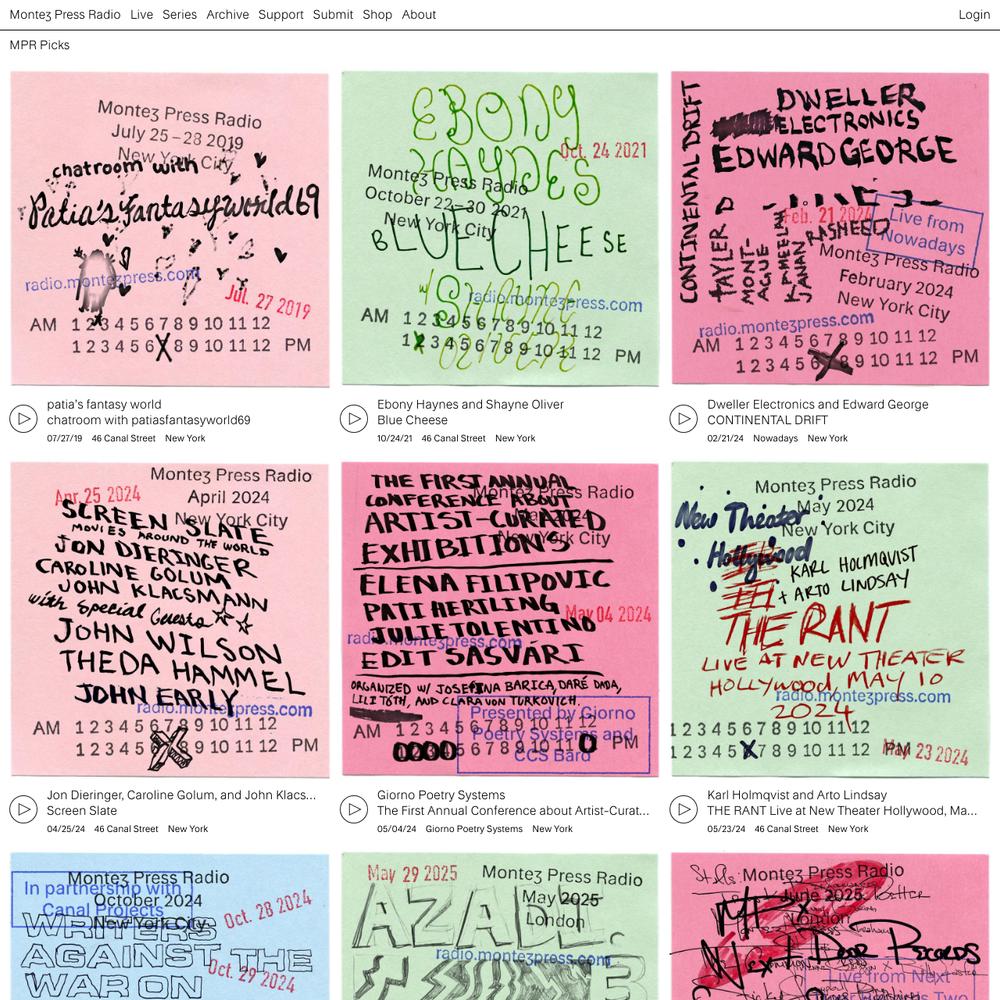 Monteʒ Press Radio Live Series Archive Support Submit Shop About Login
MPR Picks
Monteʒ Press Radio
July 25 – 28 2019
New York City
chatroom with
Patia's fantasyworld69
radio.monteʒpress.com
Jul. 27 2019
AM 1 2 3 4 5 6 7 8 9 10 11 12
1 2 3 4 5 6 7 8 9 10 11 12 PM
patia's fantasy world
chatroom with patiasfantasyworld69
07/27/19 46 Canal Street New York
EBONY
HAYNES
Oct. 24 2021
Monteʒ Press Radio
October 22–30 2021
New York City
BLUE CHEESE
w/
radio.monteʒpress.com
AM 1 2 3 4 5 6 7 8 9 10 11 12
1 2 3 4 5 6 7 8 9 10 11 12 PM
Ebony Haynes and Shayne Oliver
Blue Cheese
10/24/21 46 Canal Street New York
CONTINENTAL DRIFT
DWELLER
ELECTRONICS
EDWARD GEORGE
Feb. 21 2024
Live from
Nowadays
TAYLER
MONT-
AGUE
JANAN
RASHEED
Monteʒ Press Radio
February 2024
New York City
radio.monteʒpress.com
AM 1 2 3 4 5 6 7 8 9 10 11 12
1 2 3 4 5 6 7 8 9 10 11 12 PM
Dweller Electronics and Edward George
CONTINENTAL DRIFT
02/21/24 Nowadays New York
Monteʒ Press Radio
Apr. 25 2024
April 2024
New York City
SCREEN SLATE
MOVIES AROUND THE WORLD
JON DIERINGER
CAROLINE GOLUM
JOHN KLACSMANN
with Special Guests
JOHN WILSON
THEDA HAMMEL
JOHN EARLY
radio.monteʒpress.com
AM 1 2 3 4 5 6 7 8 9 10 11 12
1 2 3 4 5 6 7 8 9 10 11 12 PM
Jon Dieringer, Caroline Golum, and John Klacs...
Screen Slate
04/25/24 46 Canal Street New York
THE FIRST ANNUAL
CONFERENCE ABOUT
Monteʒ Press Radio
ARTIST-CURATED
EXHIBITIONS
ELENA FILIPOVIC
PATI HERTLING
May 04 2024
JULIE TOLENTINO
radio.monteʒpress.com
EDIT SASVÁRI
ORGANIZED W/ JOSEFINA BARICA, DARÉ DADA,
LILI TÓTH, AND CLARA VON TURKOVICH.
Presented by Giorno
Poetry Systems and
CCS Bard
AM 1 2 3 4 5 6 7 8 9 10 11 12
PM
Giorno Poetry Systems
The First Annual Conference about Artist-Curat...
05/04/24 Giorno Poetry Systems New York
Monteʒ Press Radio
May 2024
New York City
New Theater
Hollywood
KARL HOLMQVIST
+ ARTO LINDSAY
THE RANT
LIVE AT NEW THEATER
HOLLYWOOD, MAY 10
2024
radio.monteʒpress.com
1 2 3 4 5 6 7 8 9 10 11 12
1 2 3 4 5 6 7 8 9 10 11 12 PM
May 23 2024
Karl Holmqvist and Arto Lindsay
THE RANT Live at New Theater Hollywood, Ma...
05/23/24 46 Canal Street New York
Monteʒ Press Radio
October 2024
New York City
In partnership with
Canal Projects
Oct. 28 2024
Oct. 29 2024
WRITERS
AGAINST THE
WAR ON
May 29 2025
Monteʒ Press Radio
May 2025
London
radio.monteʒpress.com
Monteʒ Press Radio
June 2025
London
Next Door Records
Live from Next